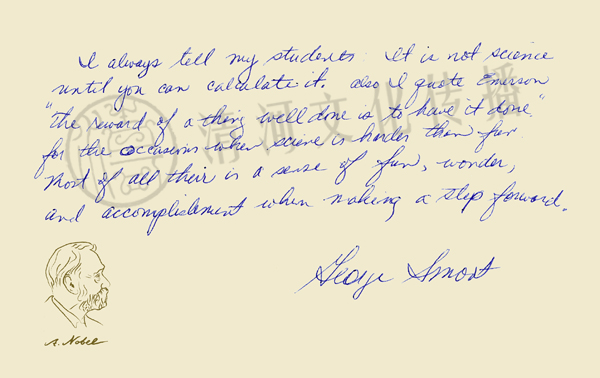 I always tell my students: It is not science
until you can calculate it. Also I quote Emerson
"The reward of a thing well done is to have it done"
for the occasions when science is harder than fun.
Most of all their is a sense of fun, wonder,
and accomplishment when making a step forward.
George Smoot
A. Nobel
清河文化传播